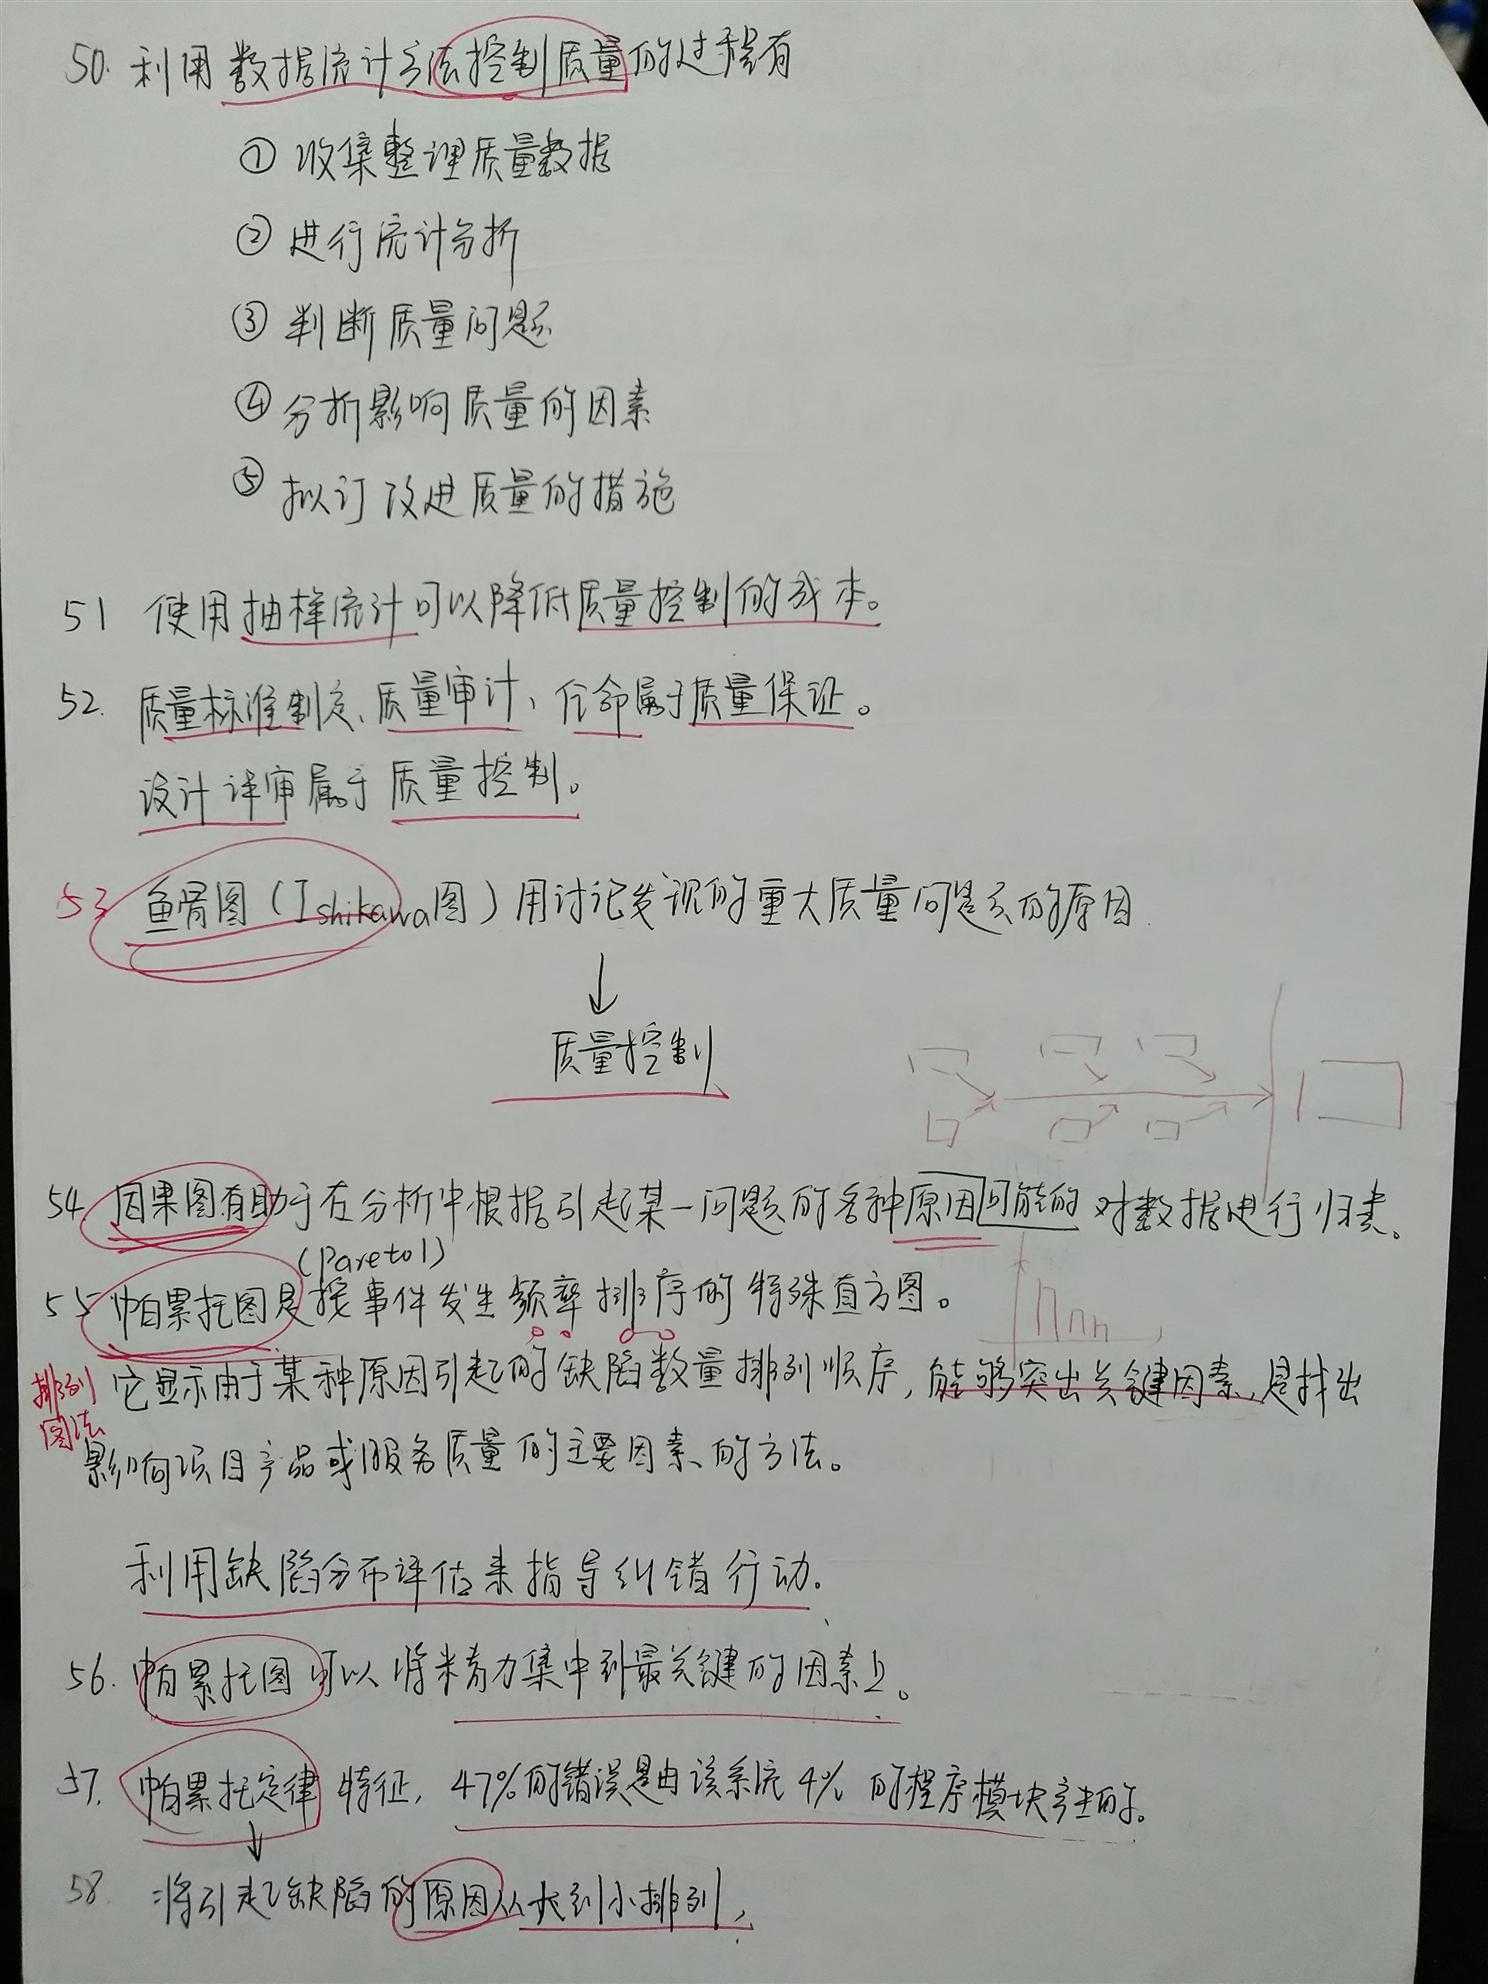 50. 利用数据统计方法控制质量的过程有
① 收集整理质量数据
② 进行统计分析
③ 判断质量问题
④ 分析影响质量的因素
⑤ 拟订改进质量的措施
51 使用抽样统计可以降低质量控制的成本。
52. 质量标准制定、质量审计、任命属于质量保证。
设计评审属于质量控制。
53 鱼骨图(Ishikawa图)用讨论发现的重大质量问题的原因
↓
质量控制
54 因果图有助于在分析中根据引起某一问题的各种原因可能的对数据进行归类。
(Pareto1)
55 帕累托图是按事件发生频率排序的特殊直方图。
排列图法
它显示由于某种原因引起的缺陷数量排列顺序,能够突出关键因素,是找出
影响项目产品或服务质量的主要因素的方法。
利用缺陷分布评估来指导纠错行动.
56. 帕累托图可以将精力集中到最关键的因素上。
57. 帕累托定律特征,47%的错误是由该系统4%的程序模块产生的。
↓
58. 将引起缺陷的原因从大到小排列,